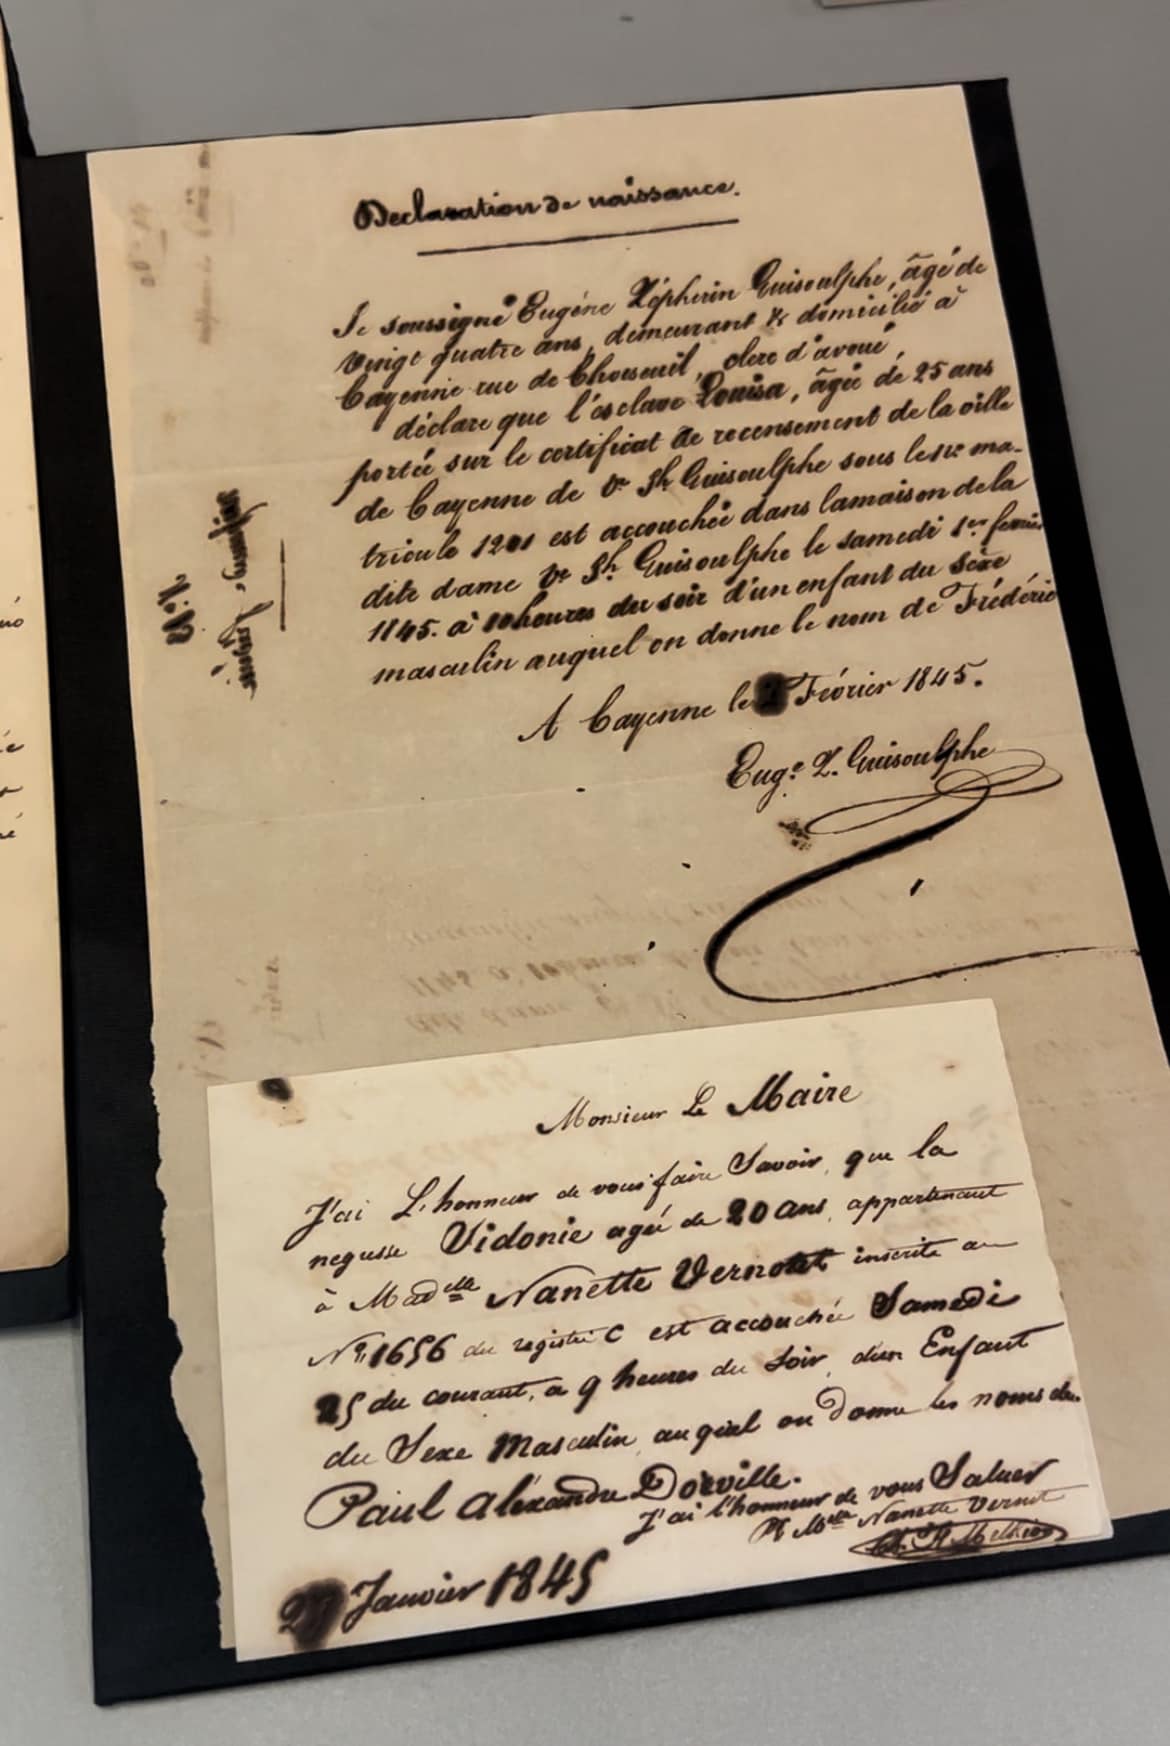 Declaration de naissance.
Je soussigné Eugène Zépherin Guisoulphe, âgé de
vingt quatre ans, demeurant & domicilié à
Cayenne rue de Choiseuil, clerc d'avoué,
déclare que l'esclave Louisa, âgée de 25 ans
portée sur le certificat de recensement de la ville
de Cayenne de Ve Jh Guisoulphe sous le Nº ma-
tricule 1201 est accouchée dans la maison de la
dite dame Ve Jh Guisoulphe le samedi 1er février
1845. à 10 heures du soir d'un enfant du sexe
masculin auquel on donne le nom de Frédéric
A Cayenne le 2 Février 1845.
Euge Z. Guisoulphe
Nº.13
Monsieur Le Maire
J'ai L'honneur de vous faire Savoir, que la
negresse Sidonie agée de 20 ans, appartenant
à Madelle Nanette Vernotet inscrite au
Nº 1656 du registre C est accouchée Samedi
25 du courant, a 9 heures du Soir, d'un Enfant
du Sexe Masculin, auquel on donne les noms de
Paul Alexandre Dorville.
J'ai l'honneur de vous Saluer
Pr Melle Nanette Vernet
27 Janvier 1845